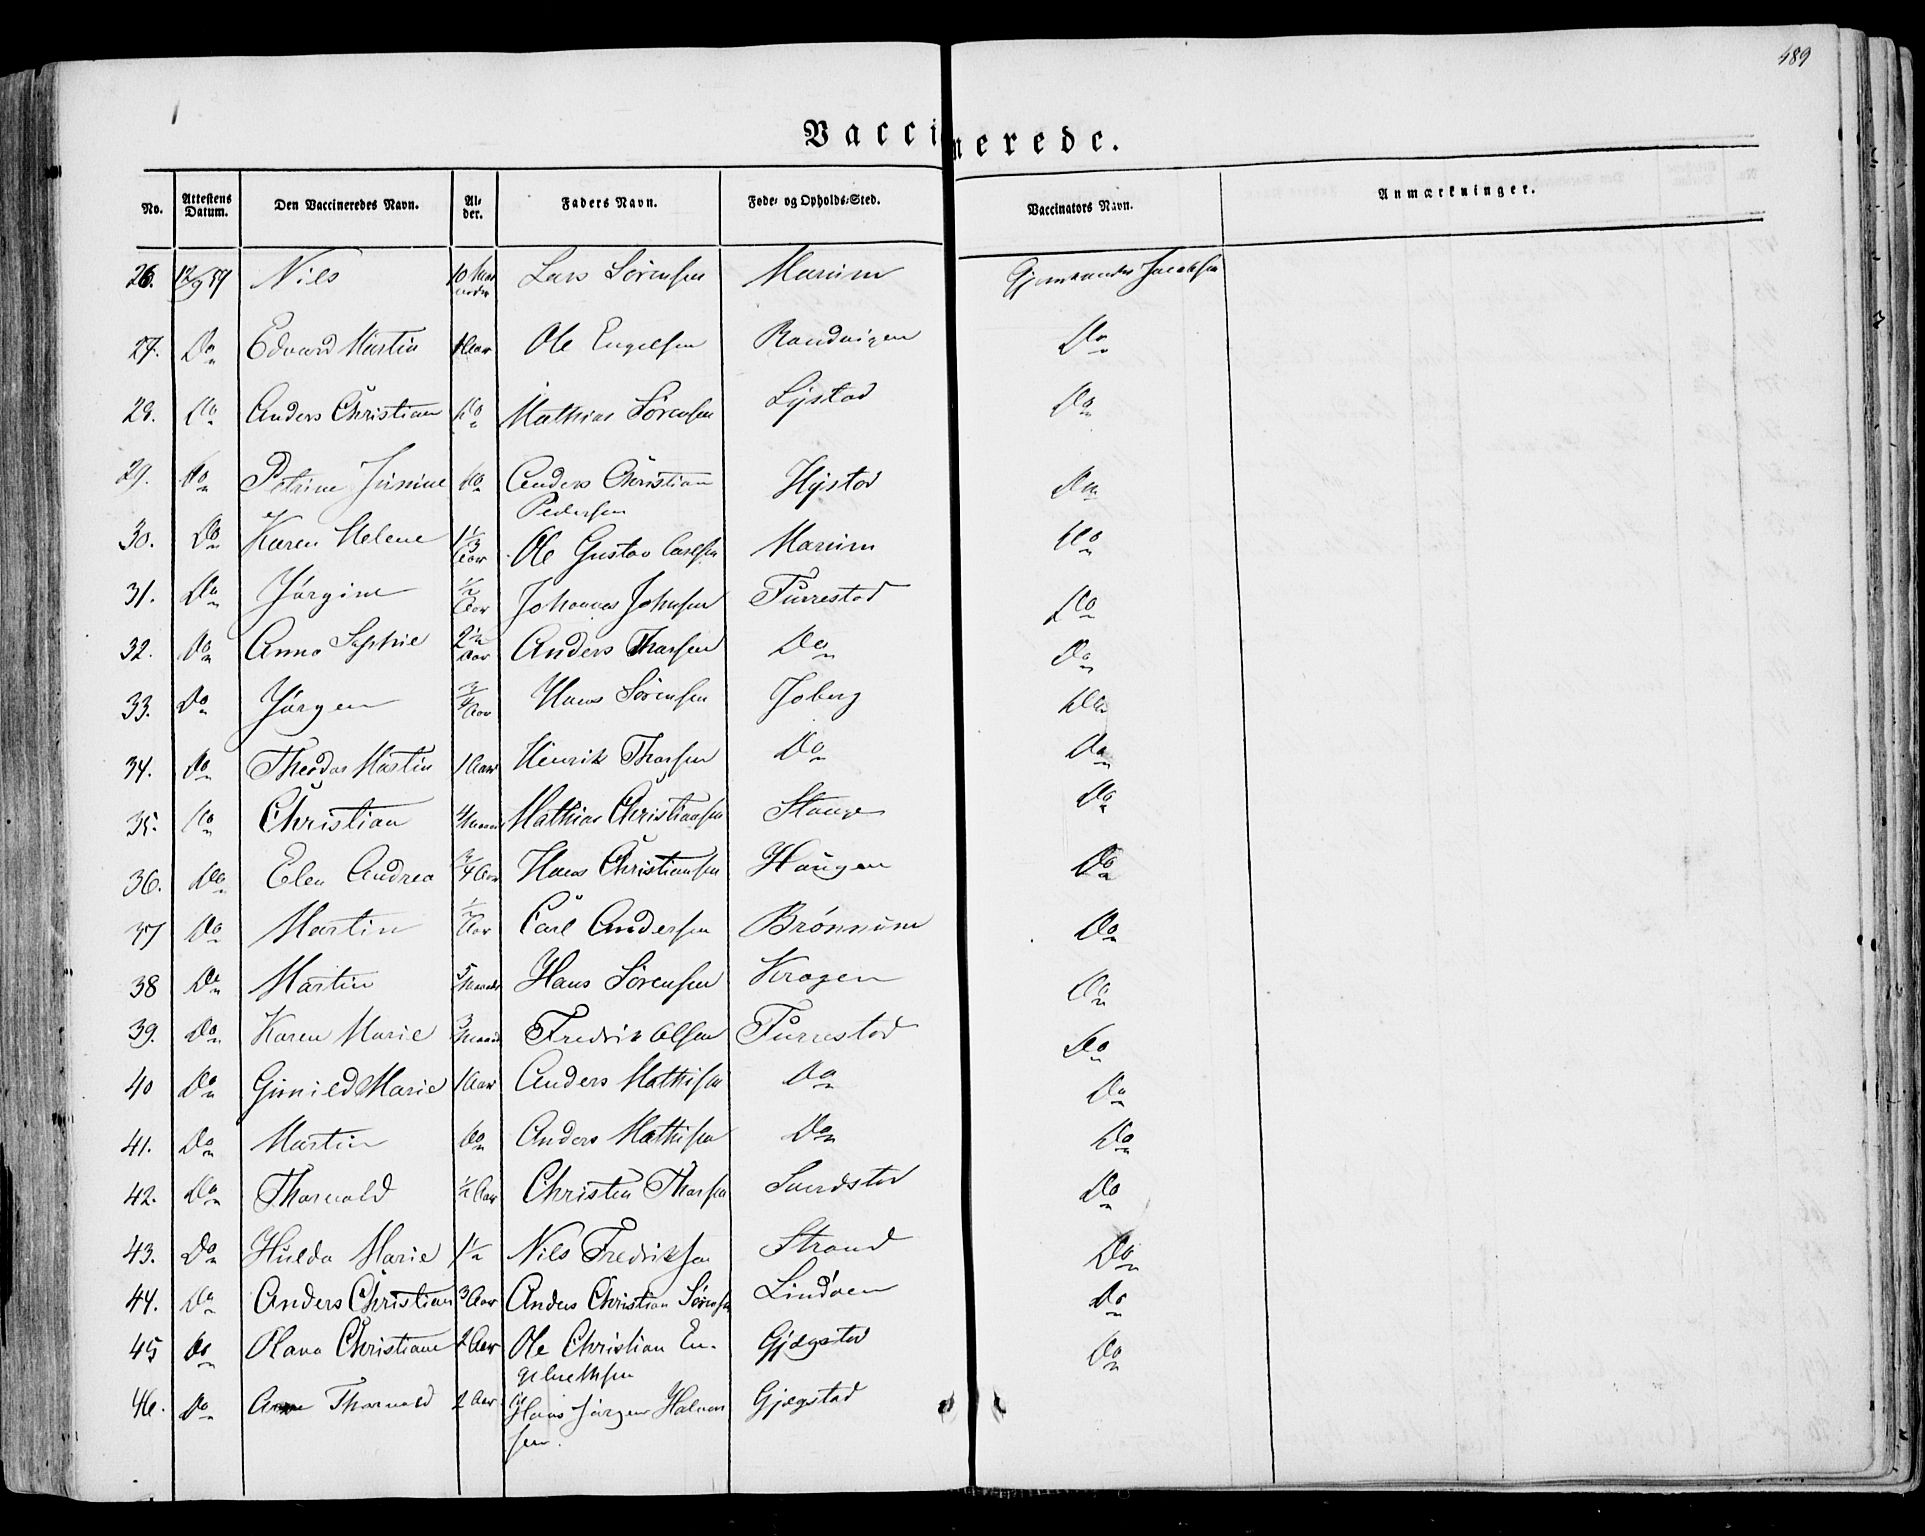 489
Vaccinerede.
No. Attestens Datum. Den Vaccineredes Navn. Al-der. Faders Navn. Føde- og Opholds-Sted. Vaccinators Navn. Anmærkninger.
26. 12/9 59 Nils 10 Lars Sørensen Marum Jacobsen
27. Do Edvard Martin 1 Aar Ole Engelsen Randvigen Do
28. Do Anders Christian Do Mathias Sørensen Lystad Do
29. Do Petrine Do Anders Christian Pedersen Hystad Do
30. Do Karen Helene 1 1/3 Aar Ole Gustav Carlsen Marum Do
31. Do Jørgine 1/2 Aar Johannes Johnsen Furrestad Do
32. Do Anna Sophie 2 1/2 Aar Anders Thorsen Do Do
33. Do Jørgen 3/4 Aar Hans Sørensen Joberg Do
34. Do Theodor Martin 1 Aar Henrik Thorsen Do Do
35. Do Christian 4 Maan Mathias Christiansen Stange Do
36. Do Elen Andrea 3/4 Aar Hans Christiansen Haugen Do
37 Do Martin Aar Carl Andersen Brønnum Do
38 Do Martin 5 Maaneder Hans Sørensen Kragen Do
39. Do Karen Marie 3 Maaned Fredrik Olsen Furrestad Do
40 Do Gunild Marie 1 Aar Anders Mathisen Do Do
41. Do Martin Do Anders Mathisen Do Do
42. Do Thorvald 1/2 Aar Christen Thorsen Sundstad Do
43. Do Hulda Marie 1 1/2 Nils Fredriksen Strand Do
44. Do Anders Christian 3 Aar Anders Christian Sørensen Lindøen Do
45 Do Olava Christiane 2 Aar Ole Christian En-
gebrethsen Gjøgstad Do
46. Do Thorvald 2 Aar Hans Jørgen Halvor
sen. Gjøgstad